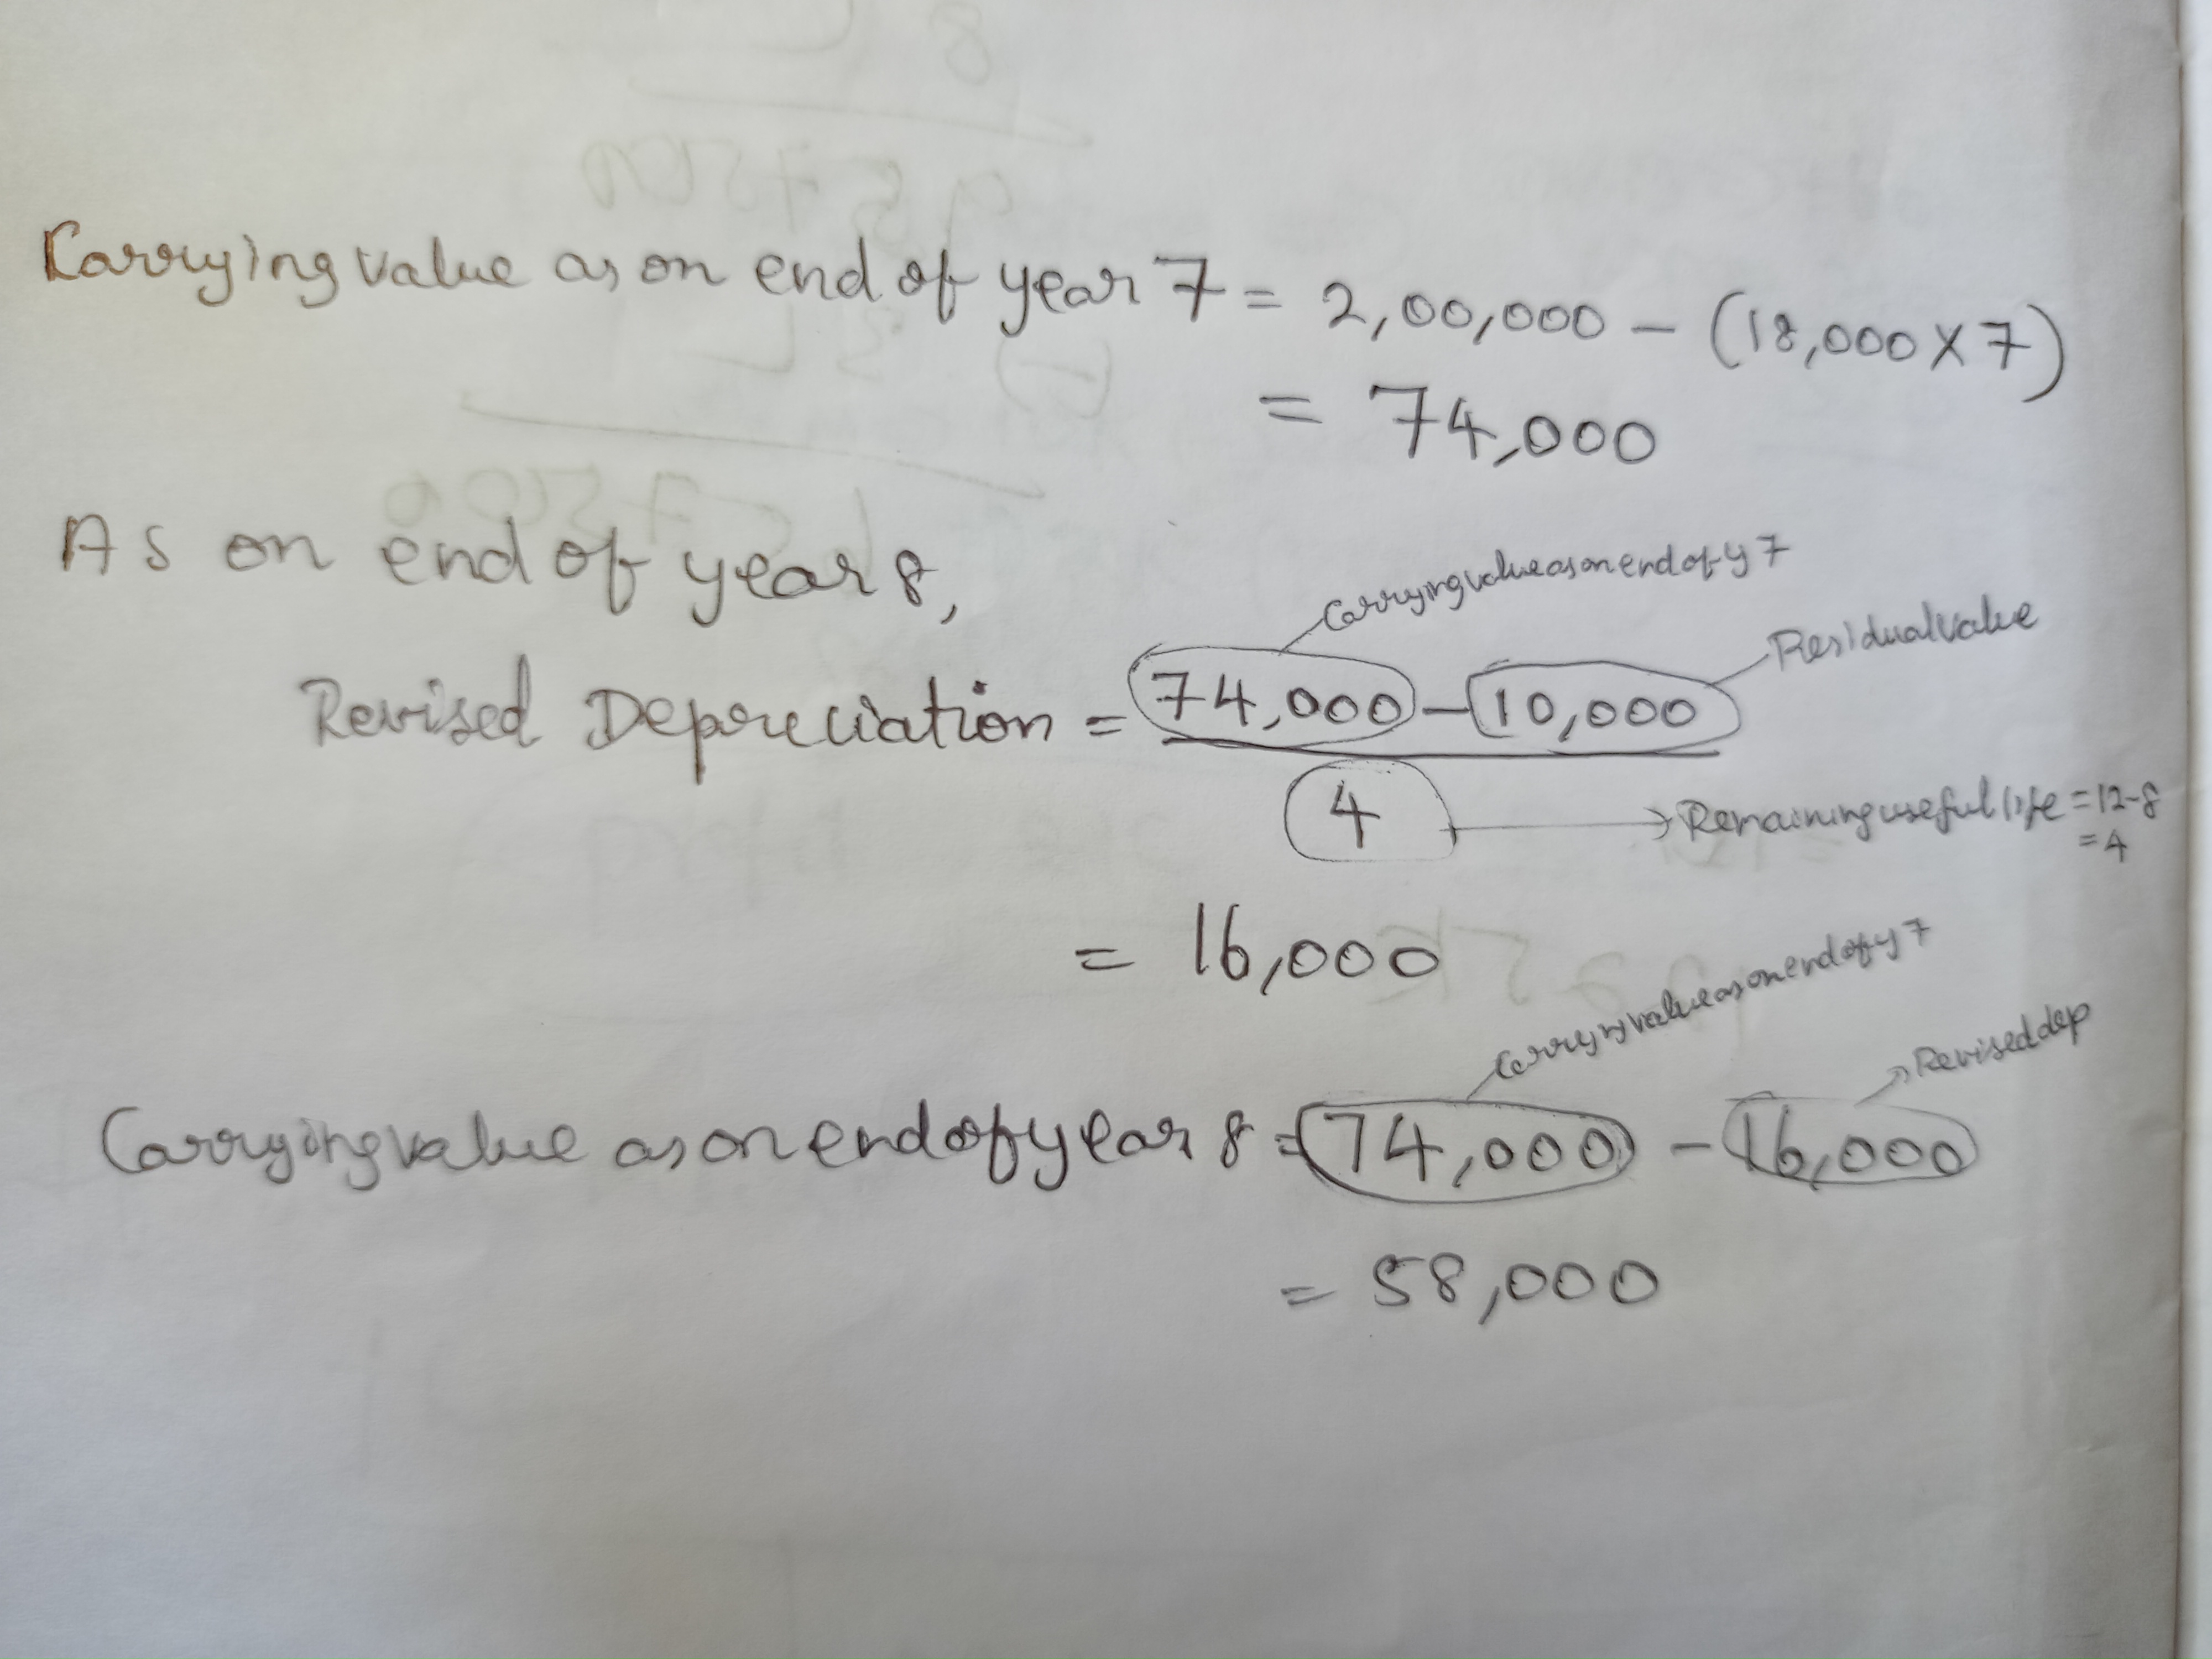 Carrying value as on end of year 7 = 2,00,000 - (18,000 X 7)
= 74,000
As on end of year 8,
Carrying value as on end of y 7
Residual value
Revised Depreciation = 74,000 - 10,000
4 → Remaining useful life = 12-8
= 4
= 16,000
Carrying value as on end of y 7
Revised dep
Carrying value as on end of year 8 = 74,000 - 16,000
= 58,000